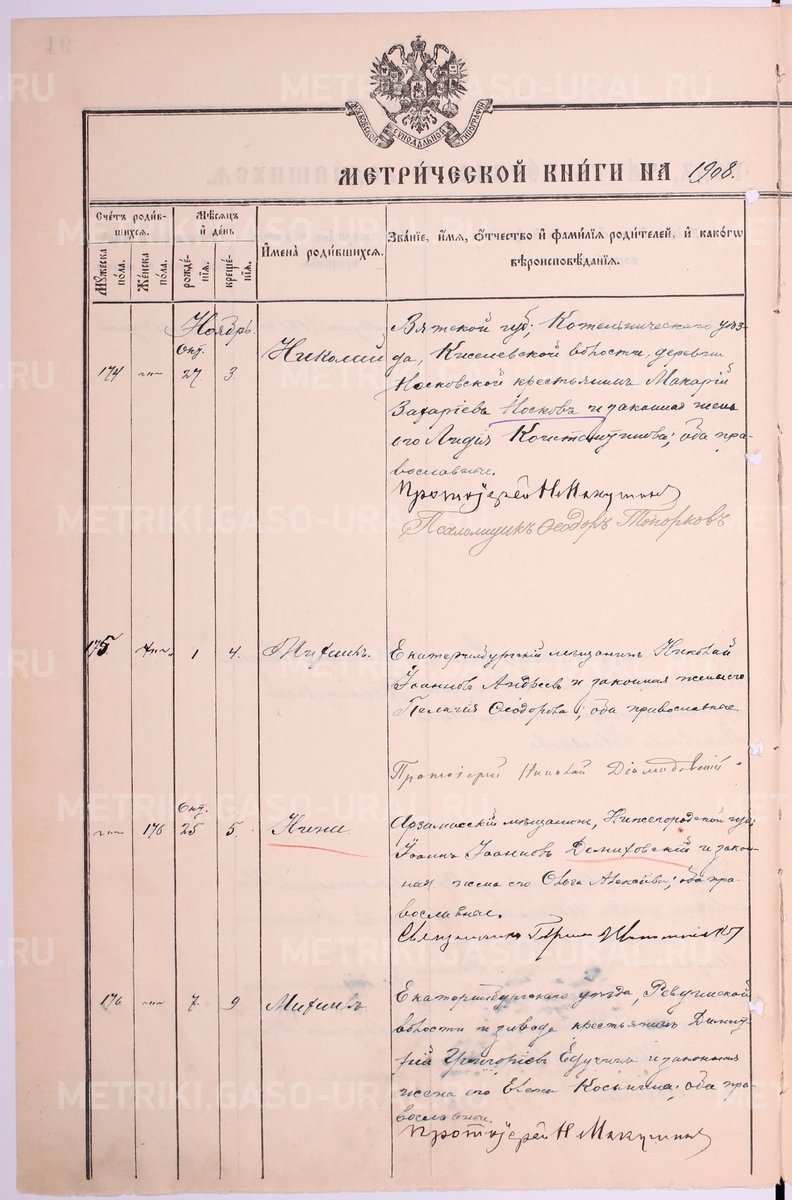 МЕТРИ́ЧЕСКОЙ КНИ́ГИ НА 1908.
Счетъ роди́в-
шихся.
Мѣсяцъ
и́ де́нь
И҆мена̀ роди́вшихся.
Зва́нїе, и҆́мя, ѻ҆́тчество и҆ фами́лїя роди́телей, и҆ како́гѡ
вѣроисповѣ́данїя.
Му́жеска
по́ла.
Же́нска
по́ла.
рожде́-
нїя.
креще́-
нїя.
Ноябрь.
174
Окт.
27.
3.
Николай
Вятской губ., Котельническаго уѣз-
да, Киселевской волости, деревни
Носковской крестьянинъ Макарій
Захаріевъ Носковъ и законная жена
его Лидія Константинова; оба пра-
вославные.
Протоіерей Н. Макушинъ
Псаломщикъ Ѳеодоръ Топорковъ
175
1
4.
Михаилъ.
Екатеринбургскій мѣщанинъ Николай
Іоанновъ Андреевъ и законная жена его
Пелагія Ѳеодорова; оба православные.
Протоіерей Николай Діомидовскій
176
Окт.
25
5.
Нина.
Арзамасскій мѣщанинъ, Нижегородской губ.
Іоаннъ Іоанновъ Демиховскій и закон-
ная жена его Ольга; оба пра-
вославные.
Священникъ
176
7.
9
Михаилъ
Екатеринбургскаго уѣзда, Ревдинской
волости и завода крестьянинъ Димит-
рій Григоріевъ и законная
жена его; оба пра-
вославные.
Протоіерей Н. Макушинъ